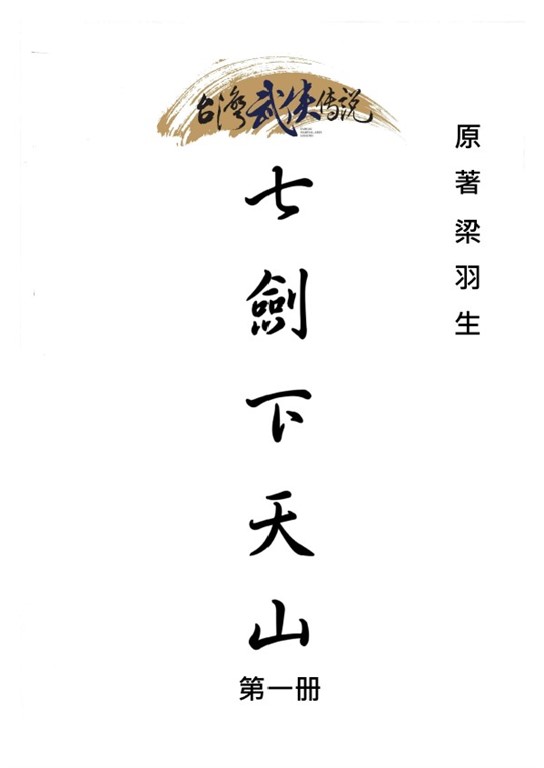 台灣武俠传説
原著梁羽生
七劍下天山
第一册